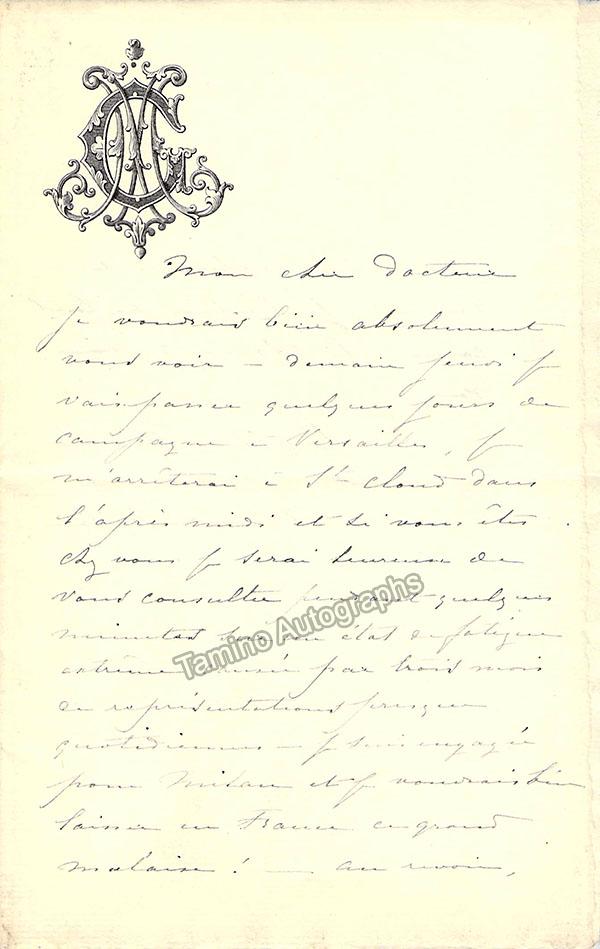 Mon cher Docteur
Je voudrais bien absolument
vous voir — demain jeudi je
vais passer quelques jours de
campagne à Versailles, je
m'arrêterai à St Cloud dans
l'après midi et si vous êtes
chez vous je serai heureuse de
vous consulter pendant quelques
minutes sur un état de fatigue
extrême causée par trois mois
de représentations presque
quotidiennes — je suis engagée
pour Milan et je voudrais bien
laisser en France ce grand
malaise ! — au revoir,
Tamino Autographs